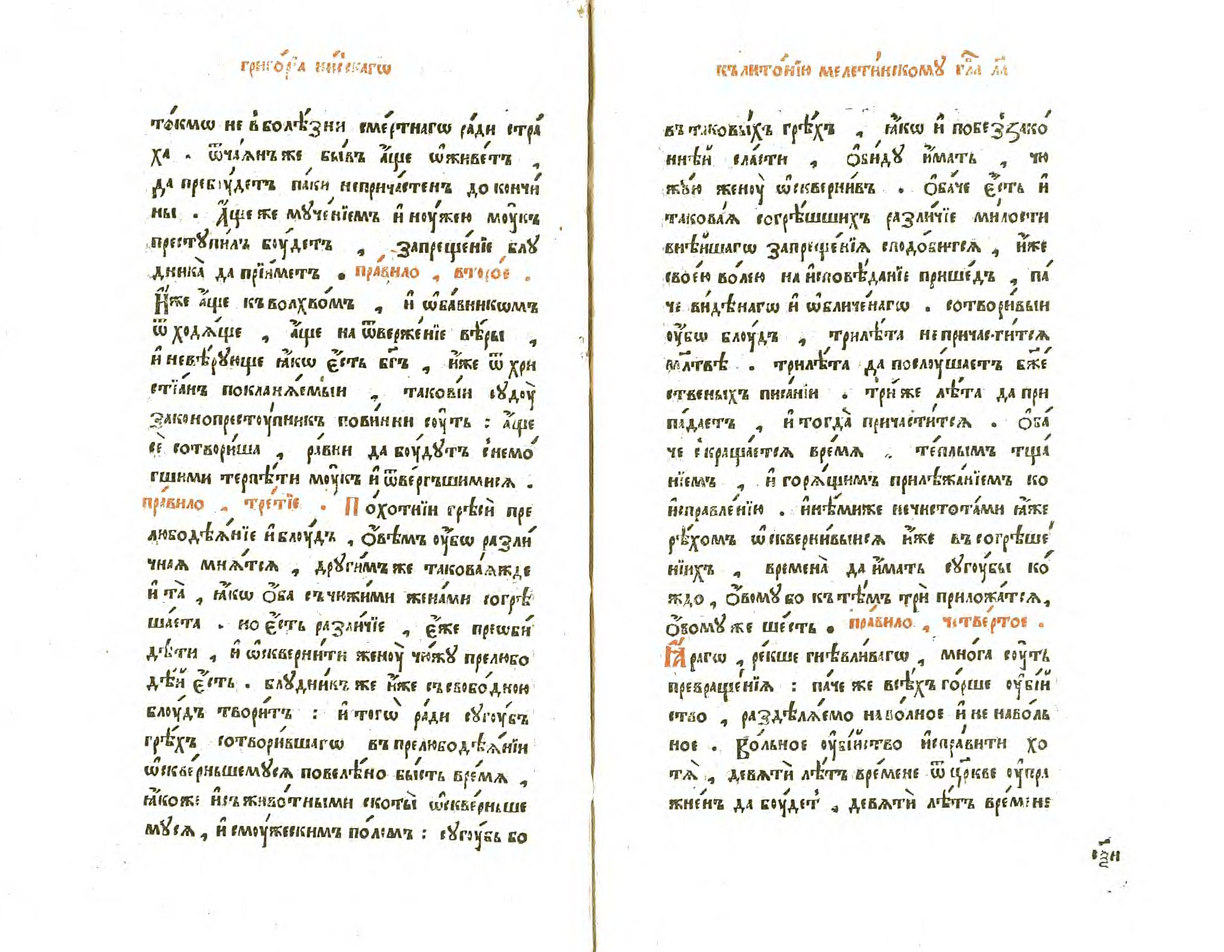 григо́рїа ни́сскагѡ
то́кмѡ не в болѣ́зни сме́ртнагѡ ра́ди стра́
ха . ѿча́янъ же бы́въ а҆́ще ѡ҆живе́тъ ,
да пребꙋ́детъ па́ки неприча́стенъ до кончи́
ны . А҆́ще же мꙋче́нїемъ и҆ ноу́жею моу́къ
престꙋпи́лъ боу́детъ , запреще́нїе блꙋ
дника̀ да прїи́метъ . пра́вило , второ́е .
И҆́же а҆́ще къ волхво́мъ , и҆ ѡ҆ба́вникѡмъ
ѿходѧ́ще , а҆́ще на ѿверже́нїе вѣ́ры ,
и҆ невѣ́рꙋюще ꙗ҆́кѡ є҆́сть бг҃ъ , и҆́же ѿ хри
стїа́нъ покланѧ́емыи , такові́и сꙋдоу̀
законопрестоу́пникъ пови́нни соу́ть : а҆́ще
сѐ сотвори́ша , ра́вни да боу́дꙋтъ с немо́
гшими терпѣ́ти моу́къ и҆ ѿве́ргъшимисѧ .
пра́вило , тре́тїе . По́хотнїи грѣсѝ пре
любодѣѧ́нїе и҆ блоу́дъ , ѻ҆́вѣмъ ᲂу҆́бѡ разли́
чнаѧ мнѧ́тсѧ , дрꙋги́мъ же такова́ѧжде
и҆ та̀ , ꙗ҆́кѡ ѻ҆́ба съ чюжи́ми жена́ми согрѣ
ша́ета . но є҆́сть разли́чїе , є҆́же преѡби́
дѣти , и҆ ѡ҆скверни́ти женоу̀ чю́жꙋ прелюбо
дѣ́й є҆́сть . блꙋдни́къ же и҆́же съ свобо́дною
блоу́дъ твори́тъ : и҆ тогѡ̀ ради сꙋгоу́бъ
грѣ́хъ сотвори́вшагѡ въ прелюбодѣѧ́нїи
ѡ҆скве́рньшемꙋсѧ повелѣ́но бы́сть вре́мѧ ,
ꙗ҆́коже и҆ съ живо́тными скоты̀ ѡ҆скве́рньше
мꙋсѧ , и҆ с моу́жескимъ по́ломъ : сꙋгоу́бь бо
къ лито́нїю мелети́нскомꙋ гла̑ ла̑
въ таковы́хъ грѣ́хъ , ꙗ҆́кѡ и҆ по беззако́
ннѣй сла́сти , ѻ҆би́дꙋ и҆́мать , чю
жꙋ́ю женоу̀ ѡ҆скверни́въ . Ѻ҆ба́че є҆́сть и҆
такова́ѧ согрѣ́шшихъ разли́чїе ми́лости
внѣ́йшагѡ запреще́нїѧ сподо́битсѧ , и҆́же
свое́ю во́лею на и҆сповѣ́данїе прише́дъ , па́
че ви́дѣнагѡ и҆ ѡ҆бличе́нагѡ . сотвори́выи
ᲂу҆́бѡ блоу́дъ , три лѣ́та не прича́стится
мл҃твѣ . три лѣ́та да послоу́шаетъ бж҃е
ственыхъ писа́нїи . три́ же лѣ́та да при
па́даетъ , и҆ тогда̀ причасти́тсѧ . Ѻ҆ба́
че скраща́етсѧ вре́мѧ . те́плымъ тща́
нїемъ , и҆ горѧ́щимъ прилѣжа́нїемъ ко
и҆справле́нїю . и҆нѣ́миже нечистота́ми ꙗ҆́же
рѣ́хомъ ѡ҆скверни́выисѧ и҆́же въ согрѣше́
нїихъ , времена̀ да и҆́мать сꙋгоу́бы ко́
ждо , ѻ҆́вомꙋ бо къ тѣ́мъ трѝ приложа́тсѧ,
ѻ҆́вомꙋ же ше́сть . пра́вило , четве́ртое .
Ꙗ҆́рагѡ , ре́кше гнѣвли́вагѡ , мно́га соу́ть
превраще́нїѧ : па́че же всѣ́хъ го́рше ᲂу҆бі́й
ство , раздѣлѧ́емо на во́лное и҆ не на во́ль
ное . Во́льное ᲂу҆бі́йство и҆спра́вити хо
тѧ̀ , девѧ́ти лѣ́тъ вре́мене ѿ цр҃кве ᲂу҆пра
жне́нъ да боу́детъ , девѧ́ти лѣ́тъ вре́мене
сзн